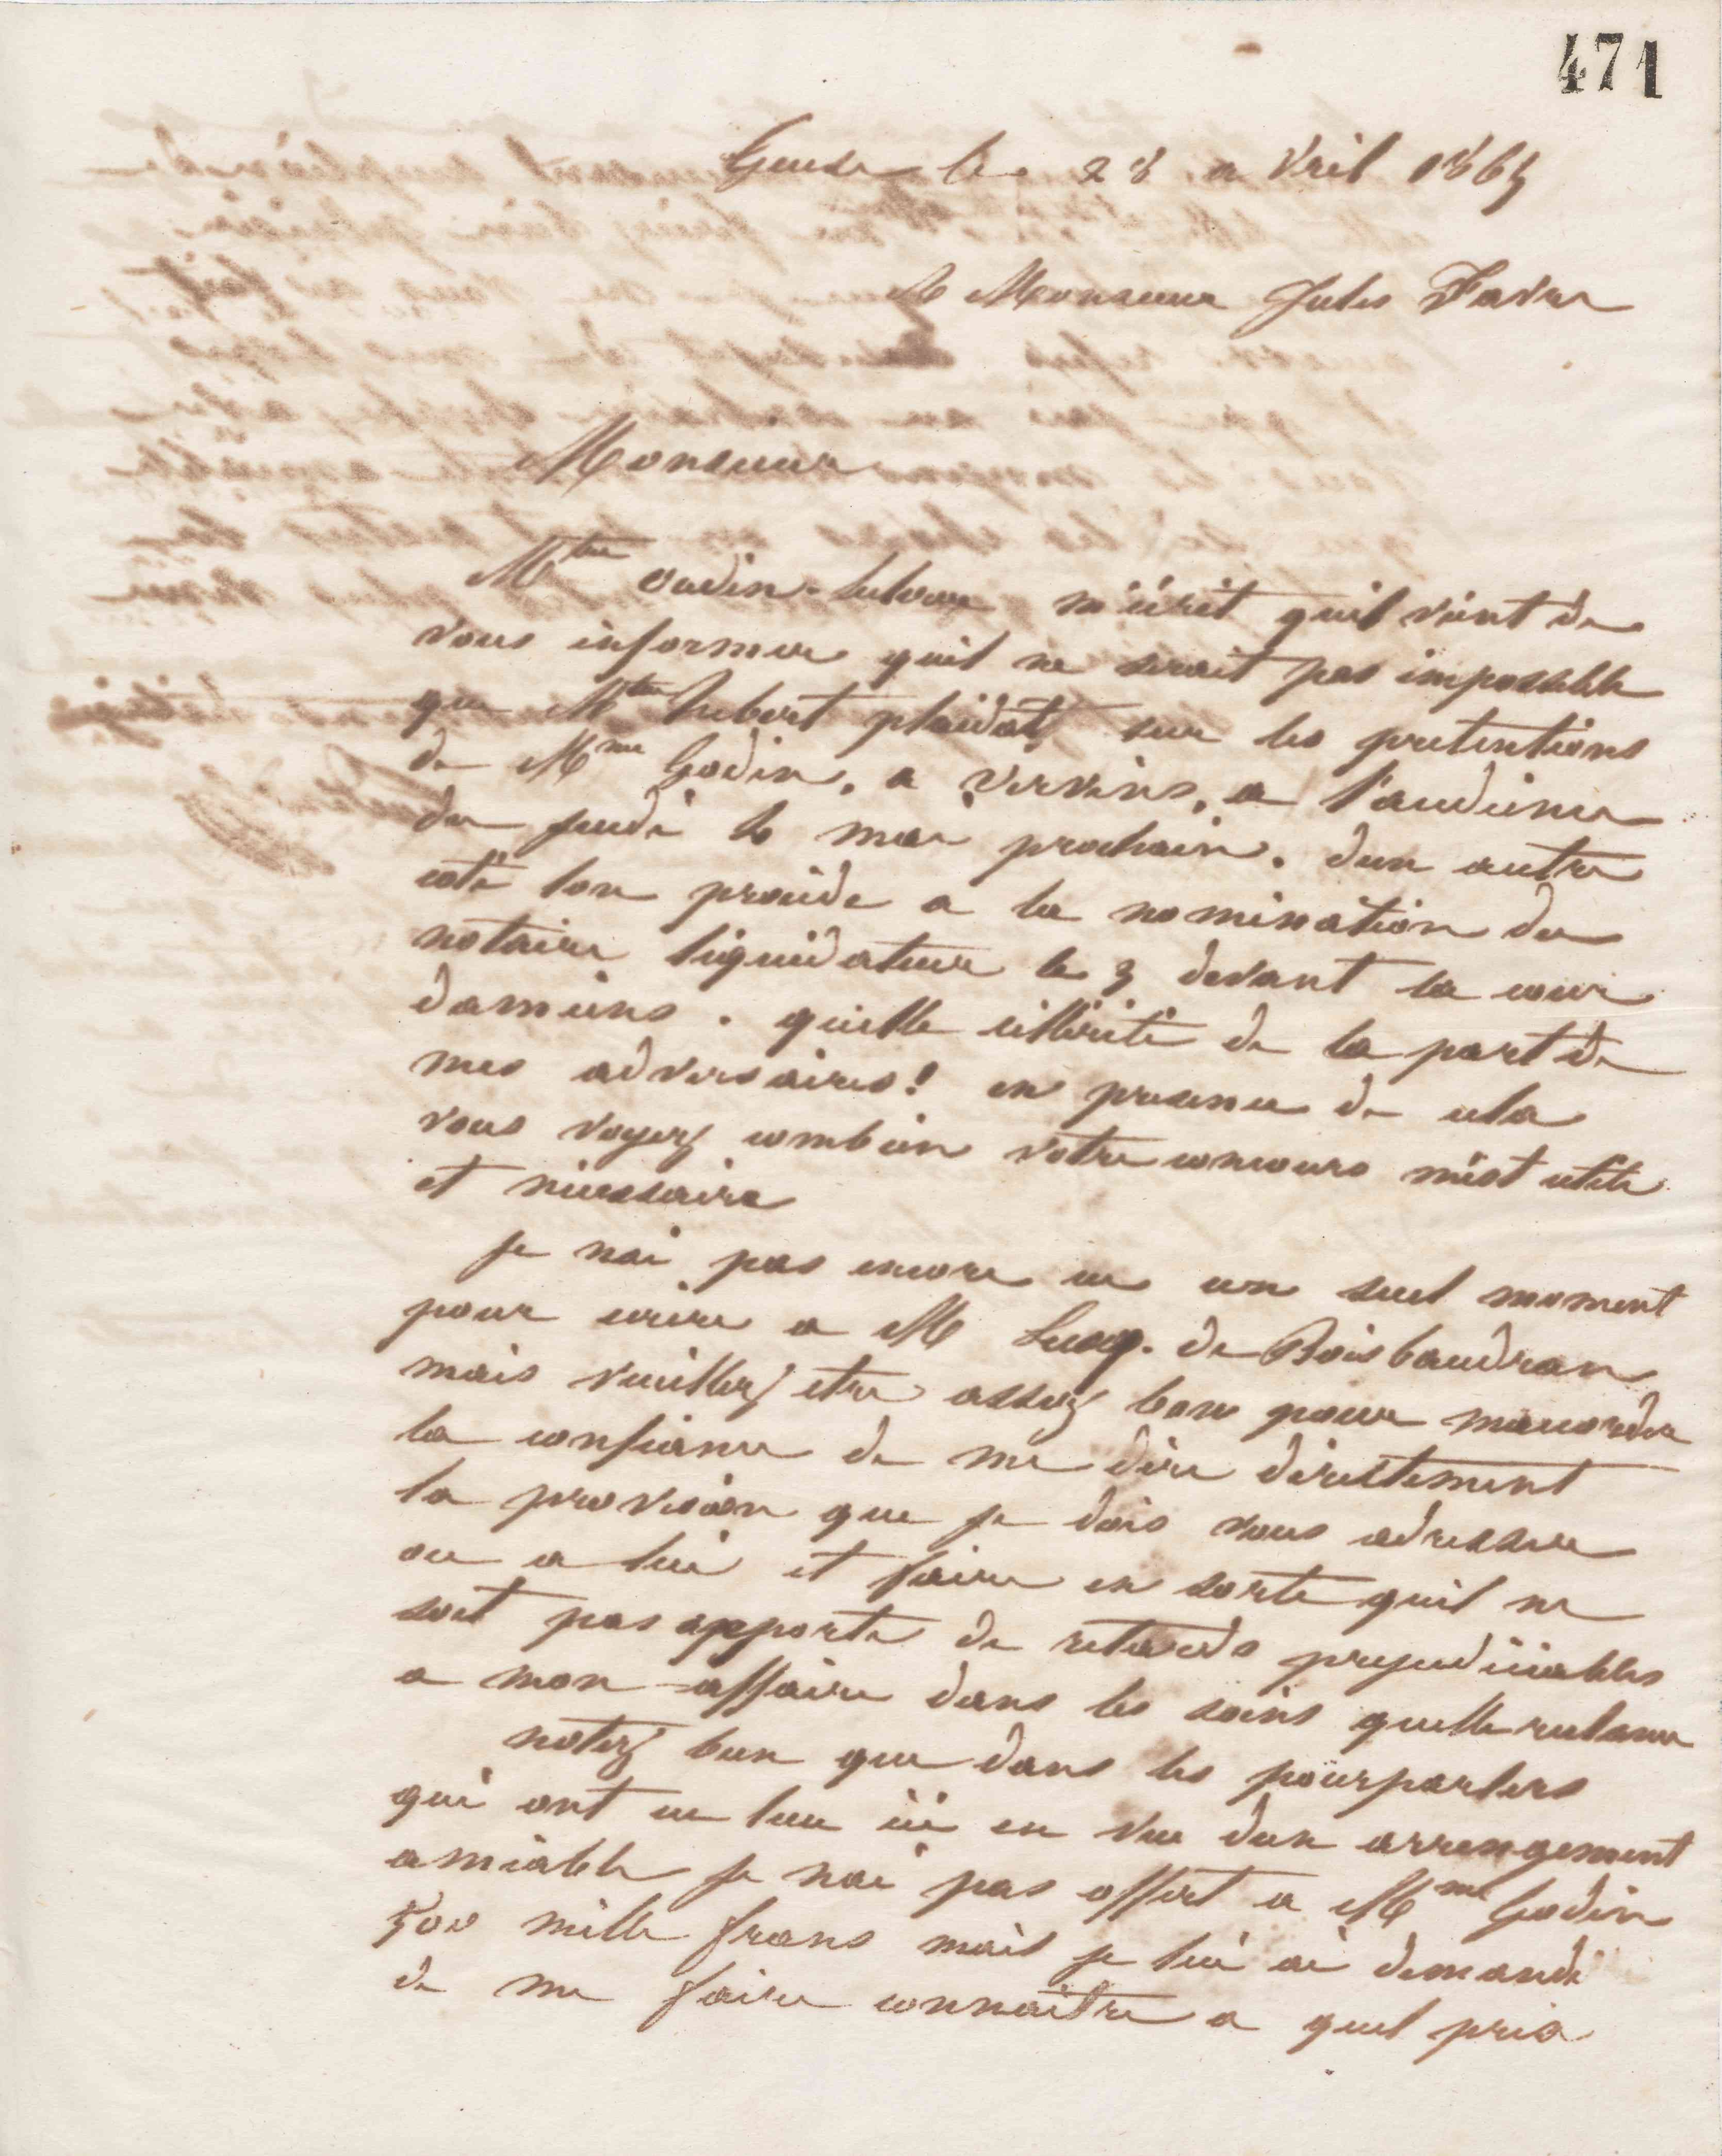 471
Guise le 28 avril 1865
A Monsieur Jules Favre
Monsieur
Mtre oudin-leleroux m'écrit quil vient de
vous informer quil ne serait pas impossible
que Mtre hebert plaidat sur les pretentions
de Mme Godin, a Vervins, a l'audience
du jeudi 6 mai prochain. dun autre
coté lon procède a la nomination du
notaire liquidateur le 3 devant la cour
damiens. quelle célérité de la part de
mes adversaires! en presence de cela
vous voyez combien votre concours m'est utile
et nécessaire
Je nai pas encore eu un seul moment
pour ecrire a M Lecoq. de Boisbaudran
mais veuillez etre assez bon pour maccorder
la confiance de me dire directement
la provision que je dois vous adresser
ou a lui et faire en sorte quil ne
soit pas apporté de retards prejudiciables
a mon affaire dans les soins quelle reclame
notez bien que dans les pourparlers
qui ont eu lieu ici en vue dun arrengement
amiable je nai pas offert a Mme Godin
500 mille frans mais je lui ai demandé
de me faire connaitre a quel prix